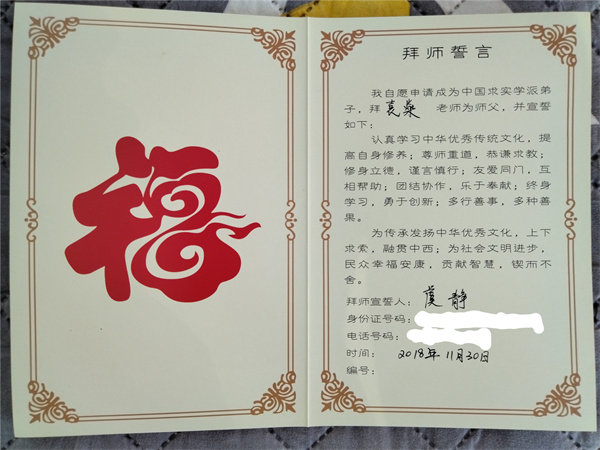 福
拜师誓言
我自愿申请成为中国求实学派弟
子，拜袁燊 老师为师父，并宣誓
如下：
认真学习中华优秀传统文化，提
高自身修养；尊师重道，恭谦求教；
修身立德，谨言慎行；友爱同门，互
相帮助；团结协作，乐于奉献；终身
学习，勇于创新；多行善事，多种善
果。
为传承发扬中华优秀文化，上下
求索，融贯中西；为社会文明进步，
民众幸福安康，贡献智慧，锲而不
舍。
拜师宣誓人：虞静
身份证号码：
电话号码：
时间： 2018年11月30日
编号：